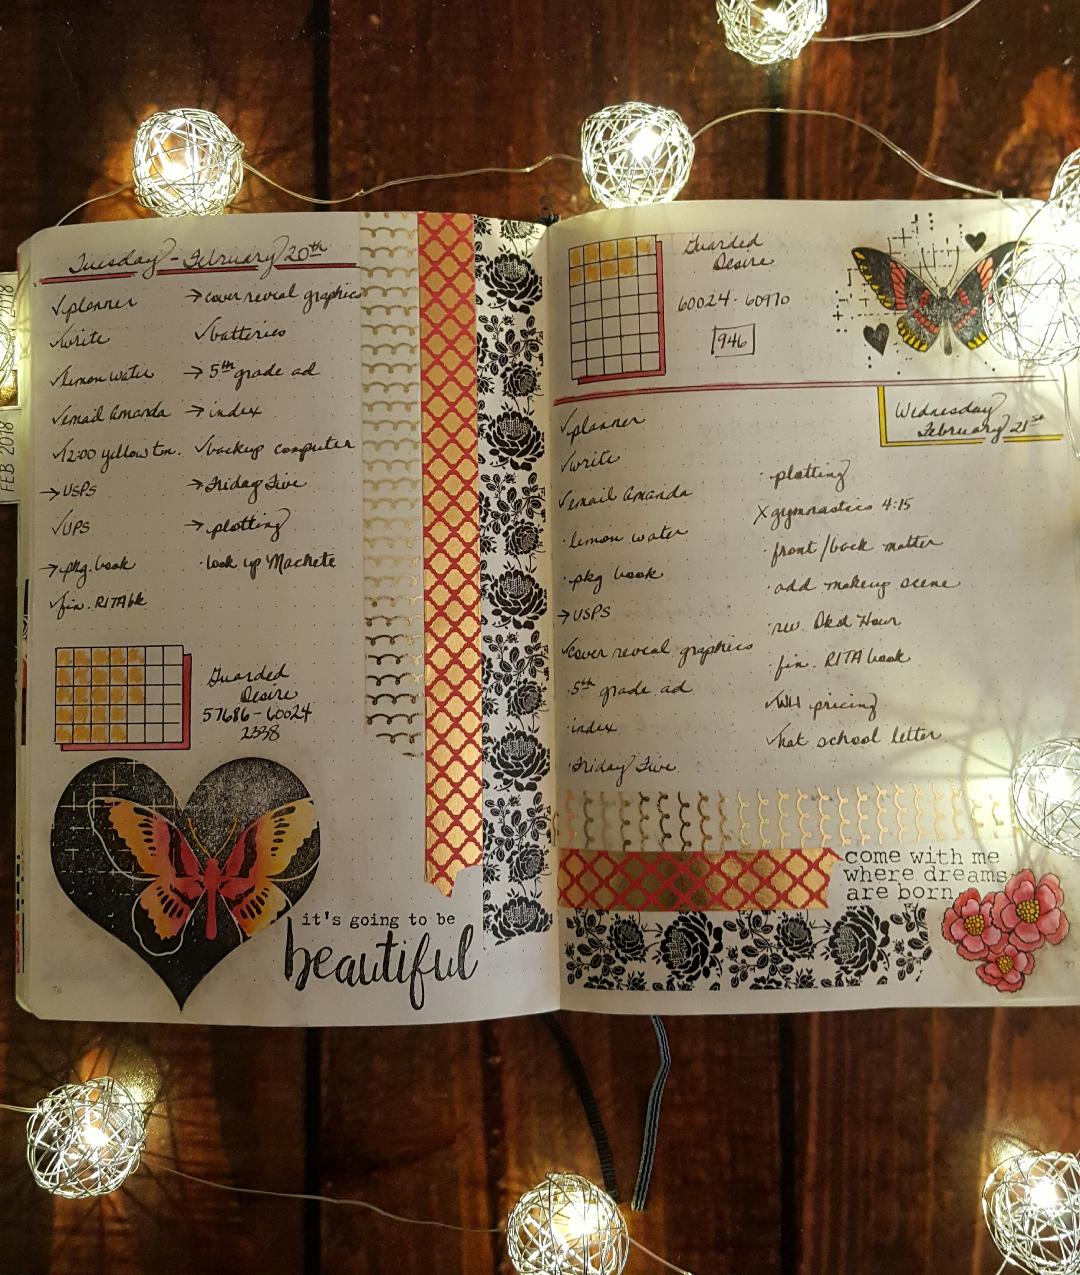 Tuesday - February 20th
✓planner
✓write
✓lemon water
✓email Amanda
✓12:00 yellow tm.
→USPS
✓UPS
→pkg. book
✓fin. RITA bk
→cover reveal graphics
✓batteries
→5th grade ad
→index
✓backup computer
→Friday Five
→plotting
·look up Machete
Guarded
Desire
57686-60024
2338
it's going to be
beautiful
76
Guarded
Desire
60024-60970
946
Wednesday
February 21st
✓planner
✓write
✓email Amanda
·lemon water
·pkg book
→USPS
✓cover reveal graphics
·5th grade ad
·index
·Friday Five
·plotting
X gymnastics 4:15
·front/back matter
·add makeup scene
·rev. Dkd Hour
·fin. RITA book
✓WH pricing
✓kat school letter
come with me
where dreams
are born
77
FEB 2018